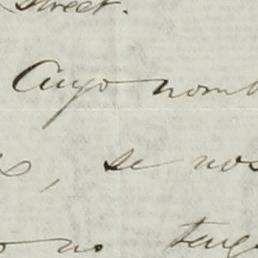 street.
Cuyo nomb
, se nos
no teng